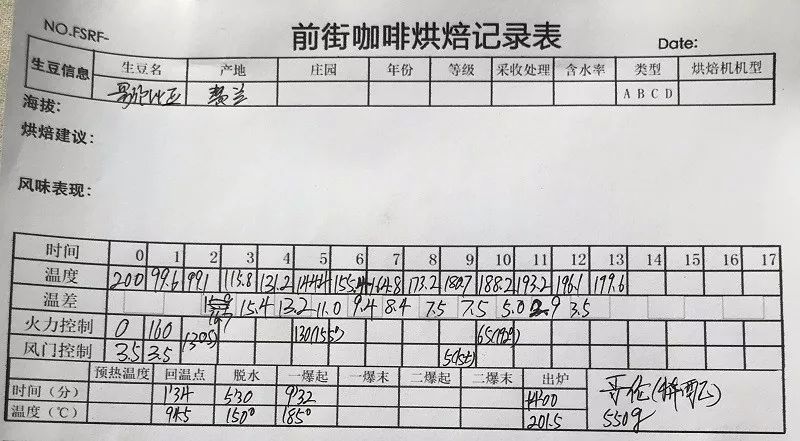 NO.FSRF- 前街咖啡烘焙记录表 Date:
生豆信息 生豆名 产地 庄园 年份 等级 采收处理 含水率 类型 烘焙机机型
哥伦比亚 慧兰 A B C D
海拔:
烘焙建议:
风味表现:
时间 0 1 2 3 4 5 6 7 8 9 10 11 12 13 14 15 16 17
温度 200 99.6 99.1 115.8 131.2 144.4 155.4 164.8 173.2 180.7 188.2 193.2 196.1 199.6
温差 15.4 13.2 11.0 9.4 8.4 7.5 7.5 5.0 2.9 3.5
火力控制 0 160 130(155°)
风门控制 3.5 3.5
预热温度 回温点 脱水 一爆起 一爆末 二爆起 二爆末 出炉
时间(分) 1'34 5'30 9'32 14'00
温度(℃) 94.5 150° 185° 201.5
550g